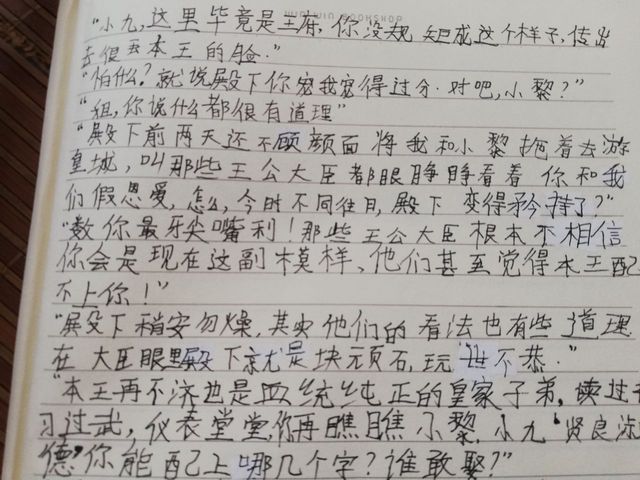 BOOKSHOP
“小九,这里毕竟是王府,你没规矩成这个样子,传出
去很丢本王的脸。”
“怕什么?就说殿下你宠我宠得过分.对吧,小黎?”
“姐,你说什么都很有道理”
“殿下前两天还不顾颜面将我和小黎拖着去游
皇城,叫那些王公大臣都眼睁睁看着你和我
们假恩爱,怎么,今时不同往日,殿下变得矜持了?”
“数你最牙尖嘴利!那些王公大臣根本不相信
你会是现在这副模样、他们甚至觉得本王配
不上你!”
“殿下稍安勿燥,其实他们的看法也有些道理
在大臣眼里殿下就是块顽石,玩世不恭.”
“本王再不济也是血统纯正的皇家子弟,读过
习过武,仪表堂堂,你再瞧瞧小黎,小九‘贤良淑
德’你能配上哪几个字?谁敢娶?”